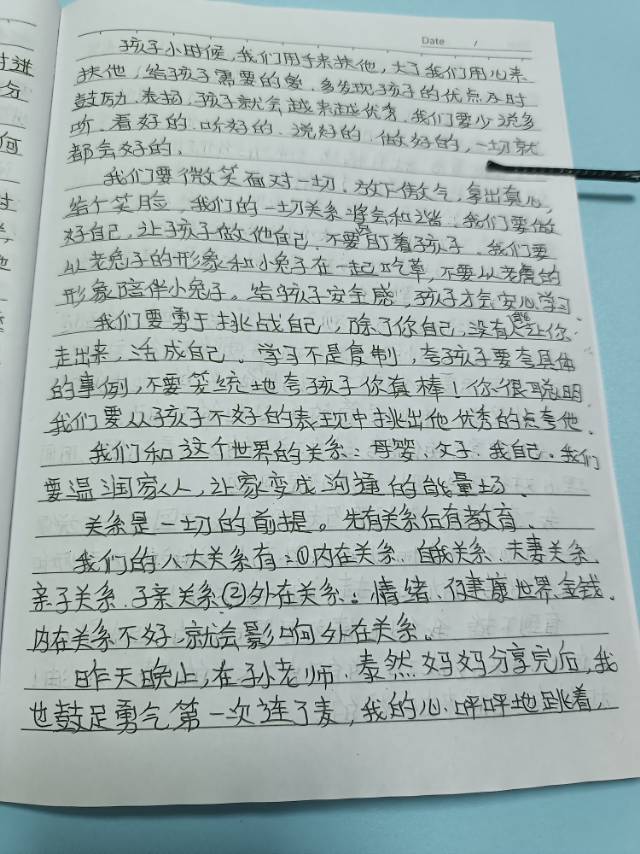 Date /
孩子小时候,我们用手来扶他,大了我们用心来
扶他,给孩子需要的爱,多发现孩子的优点及时
鼓励、表扬,孩子就会越来越优秀,我们要少说多
听,看好的,听好的,说好的,做好的,一切就
都会好的.
我们要微笑面对一切,放下傲气,拿出真心,
给个笑脸,我们的一切关系将会和谐,我们要做
好自己,让孩子做他自己,不要盯着孩子,我们要
以老兔子的形象和小兔子在一起吃草,不要以老虎的
形象陪伴小兔子。给孩子安全感,孩子才会安心学习.
我们要勇于挑战自己,除了你自己,没有人能让你
走出来,活成自己。学习不是复制,夸孩子要夸具体
的事例,不要笼统地夸孩子你真棒!你很聪明.
我们要从孩子不好的表现中挑出他优秀的点夸他.
我们和这个世界的关系:母婴、父子、我自己。我们
要温润家人,让家变成沟通的能量场.
关系是一切的前提。先有关系后有教育.
我们的八大关系有:①内在关系、自我关系、夫妻关系、
亲子关系、子亲关系②外在关系:情绪、健康世界、金钱.
内在关系不好,就会影响外在关系。
昨天晚上,在孙老师、泰然妈妈分享完后,我
也鼓足勇气第一次连了麦,我的心呯呯地跳着,